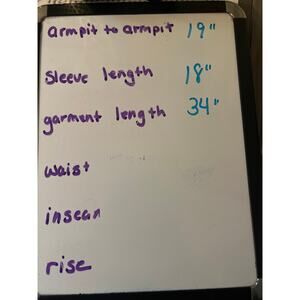 armpit to armpit 19"
sleeve length 18"
garment length 34"
waist
inseam
rise